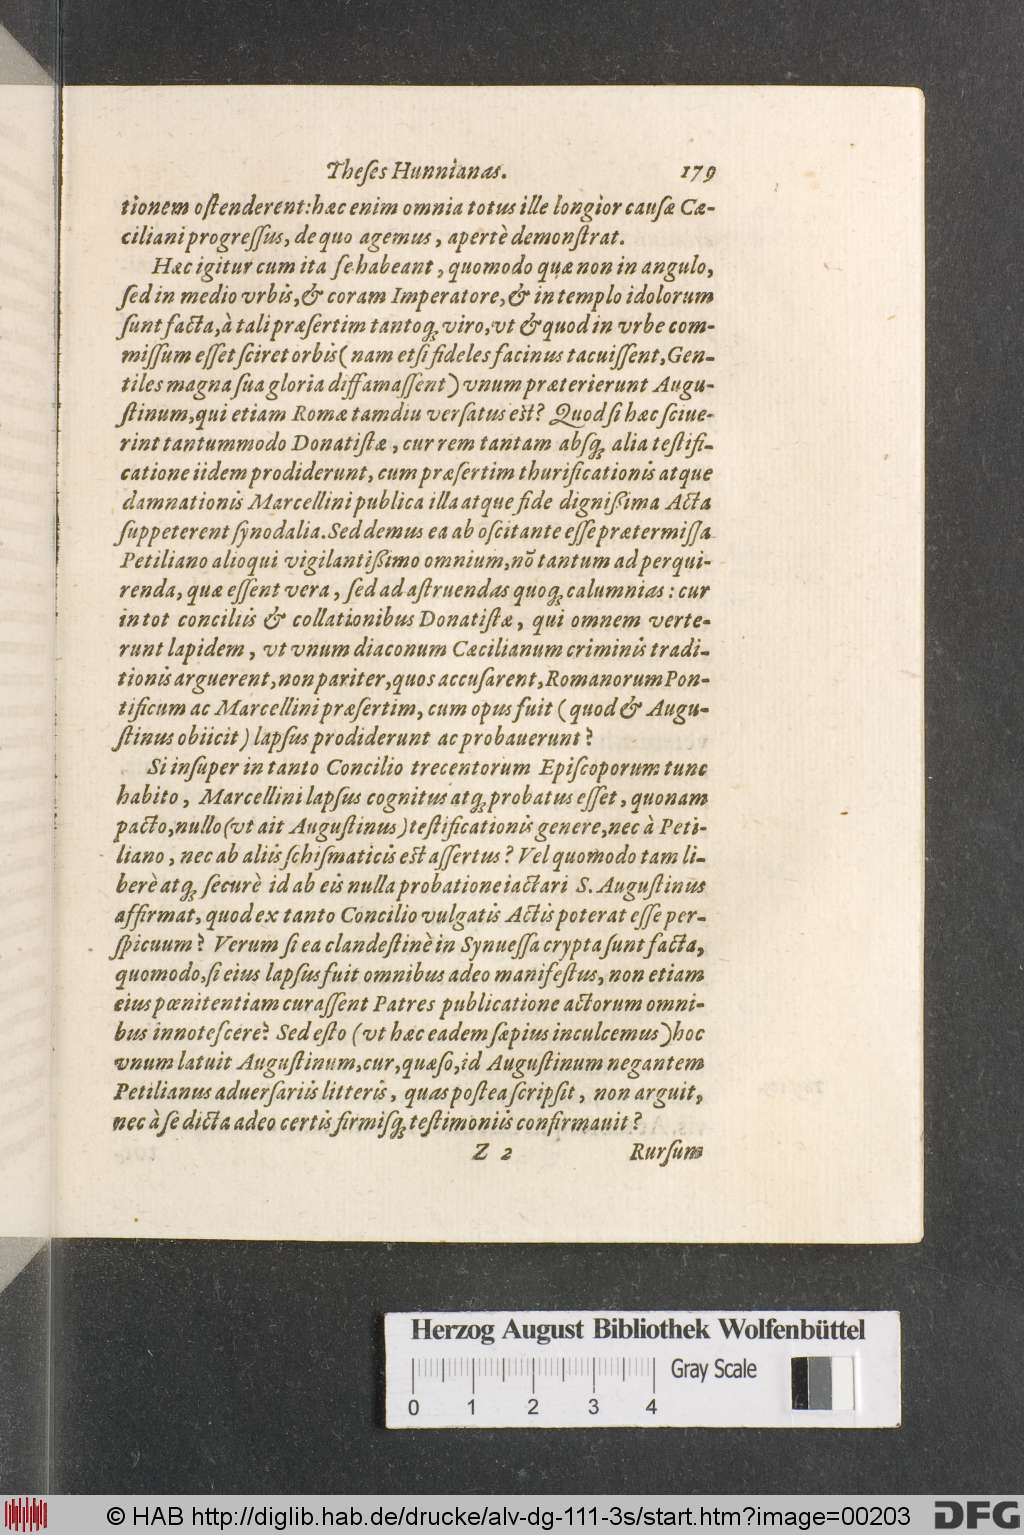 Theſes Hunnianas. 179
tionem oſtenderent: hæc enim omnia totus ille longior cauſæ Cæ-
ciliani progreſſus, de quo agemus, apertè demonſtrat.
Hæc igitur cum ita ſe habeant, quomodo quæ non in angulo,
ſed in medio vrbis, & coram Imperatore, & in templo idolorum
ſunt facta, à tali præſertim tantoq́; viro, vt & quod in vrbe com-
miſſum eſſet ſciret orbis (nam etſi fideles facinus tacuiſſent, Gen-
tiles magna ſua gloria diffamaſſent) vnum præterierunt Augu-
ſtinum, qui etiam Romæ tamdiu verſatus eſt? Quod ſi hæc ſciue-
rint tantummodo Donatiſtæ, cur rem tantam abſq́; alia teſtifi-
catione iidem prodiderunt, cum præſertim thurificationis atque
damnationis Marcellini publica illa atque fide digniſſima Acta
ſuppeterent ſynodalia. Sed demus ea ab oſcitante eſſe prætermiſſa
Petiliano alioqui vigilantiſſimo omnium, nō tantum ad perqui-
renda, quæ eſſent vera, ſed ad aſtruendas quoq́; calumnias: cur
in tot conciliis & collationibus Donatiſtæ, qui omnem verte-
runt lapidem, vt vnum diaconum Cæcilianum criminis tradi-
tionis arguerent, non pariter, quos accuſarent, Romanorum Pon-
tificum ac Marcellini præſertim, cum opus fuit (quod & Augu-
ſtinus obiicit) lapſus prodiderunt ac probauerunt?
Si inſuper in tanto Concilio trecentorum Epiſcoporum tunc
habito, Marcellini lapſus cognitus atq́; probatus eſſet, quonam
pacto, nullo (vt ait Auguſtinus) teſtificationis genere, nec à Peti-
liano, nec ab aliis ſchiſmaticis eſt aſſertus? Vel quomodo tam li-
berè atq́; ſecurè id ab eis nulla probatione iactari S. Auguſtinus
affirmat, quod ex tanto Concilio vulgatis Actis poterat eſſe per-
ſpicuum? Verum ſi ea clandeſtinè in Synueſſa crypta ſunt facta,
quomodo, ſi eius lapſus fuit omnibus adeo manifeſtus, non etiam
eius pœnitentiam curaſſent Patres publicatione actorum omni-
bus innoteſcere? Sed eſto (vt hæc eadem ſæpius inculcemus) hoc
vnum latuit Auguſtinum, cur, quæſo, id Auguſtinum negantem
Petilianus aduerſariis litteris, quas poſtea ſcripſit, non arguit,
nec à ſe dicta adeo certis firmiſq́; teſtimoniis confirmauit?
Z 2 Rurſum
Herzog August Bibliothek Wolfenbüttel
Gray Scale
0 1 2 3 4
© HAB http://diglib.hab.de/drucke/alv-dg-111-3s/start.htm?image=00203 DFG